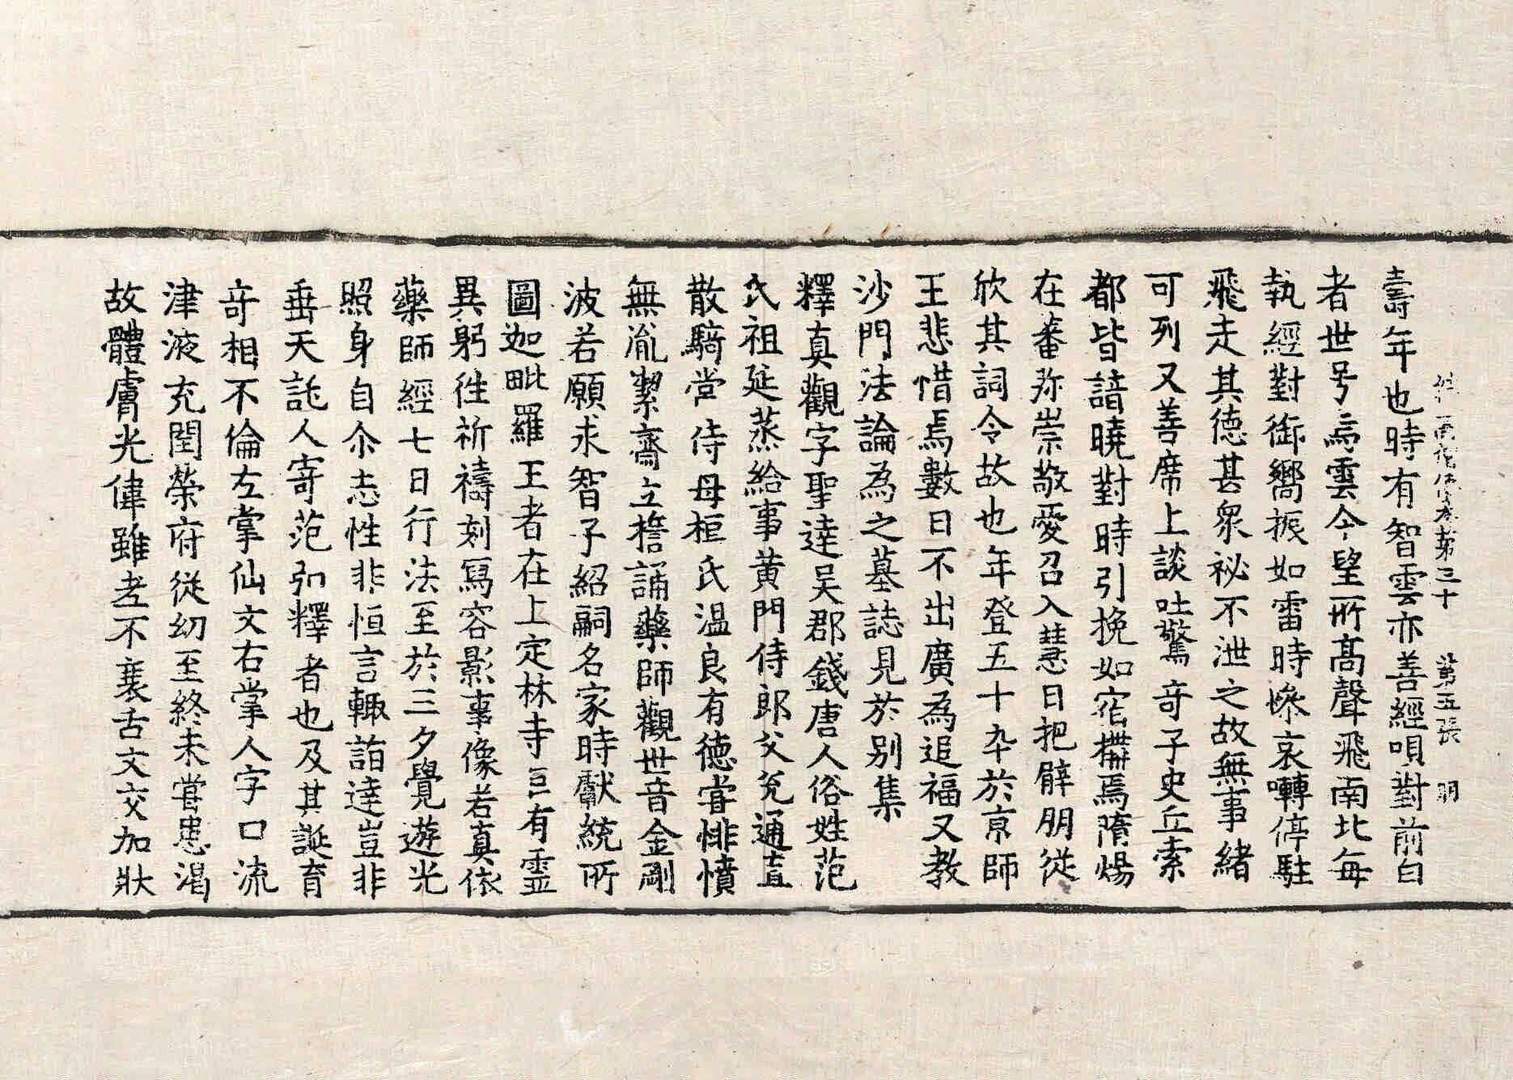 續高僧傳卷第三十 第五張 明
壽年也時有智雲亦善經唄對前白
者世号烏雲令望所高聲飛南北每
執經對御嚮振如雷時慘哀囀停駐
飛走其德甚衆祕不泄之故無事緒
可列又善席上談吐驚奇子史丘索
都皆諳曉對時引挽如宿構焉隋煬
在蕃弥崇敬愛召入慧日把臂朋從
欣其詞令故也年登五十卒於京師
王悲惜焉數日不出廣為追福又教
沙門法論為之墓誌見於別集
釋真觀字聖達吴郡錢唐人俗姓范
氏祖延蒸給事黄門侍郎父兖通直
散騎常侍母桓氏温良有德甞悱憤
無胤絜齋立誓誦藥師觀世音金剛
波若願求智子紹嗣名家時獻統所
圖迦毗羅王者在上定林寺巨有靈
異躬往祈禱刻寫容影事像若真依
藥師經七日行法至於三夕覺遊光
照身自尒志性非恒言輙詣達豈非
垂天託人寄范弘釋者也及其誕育
奇相不倫左掌仙文右掌人字口流
津液充閏榮府從幼至終未甞患渴
故體膚光偉雖老不衰舌文交加狀